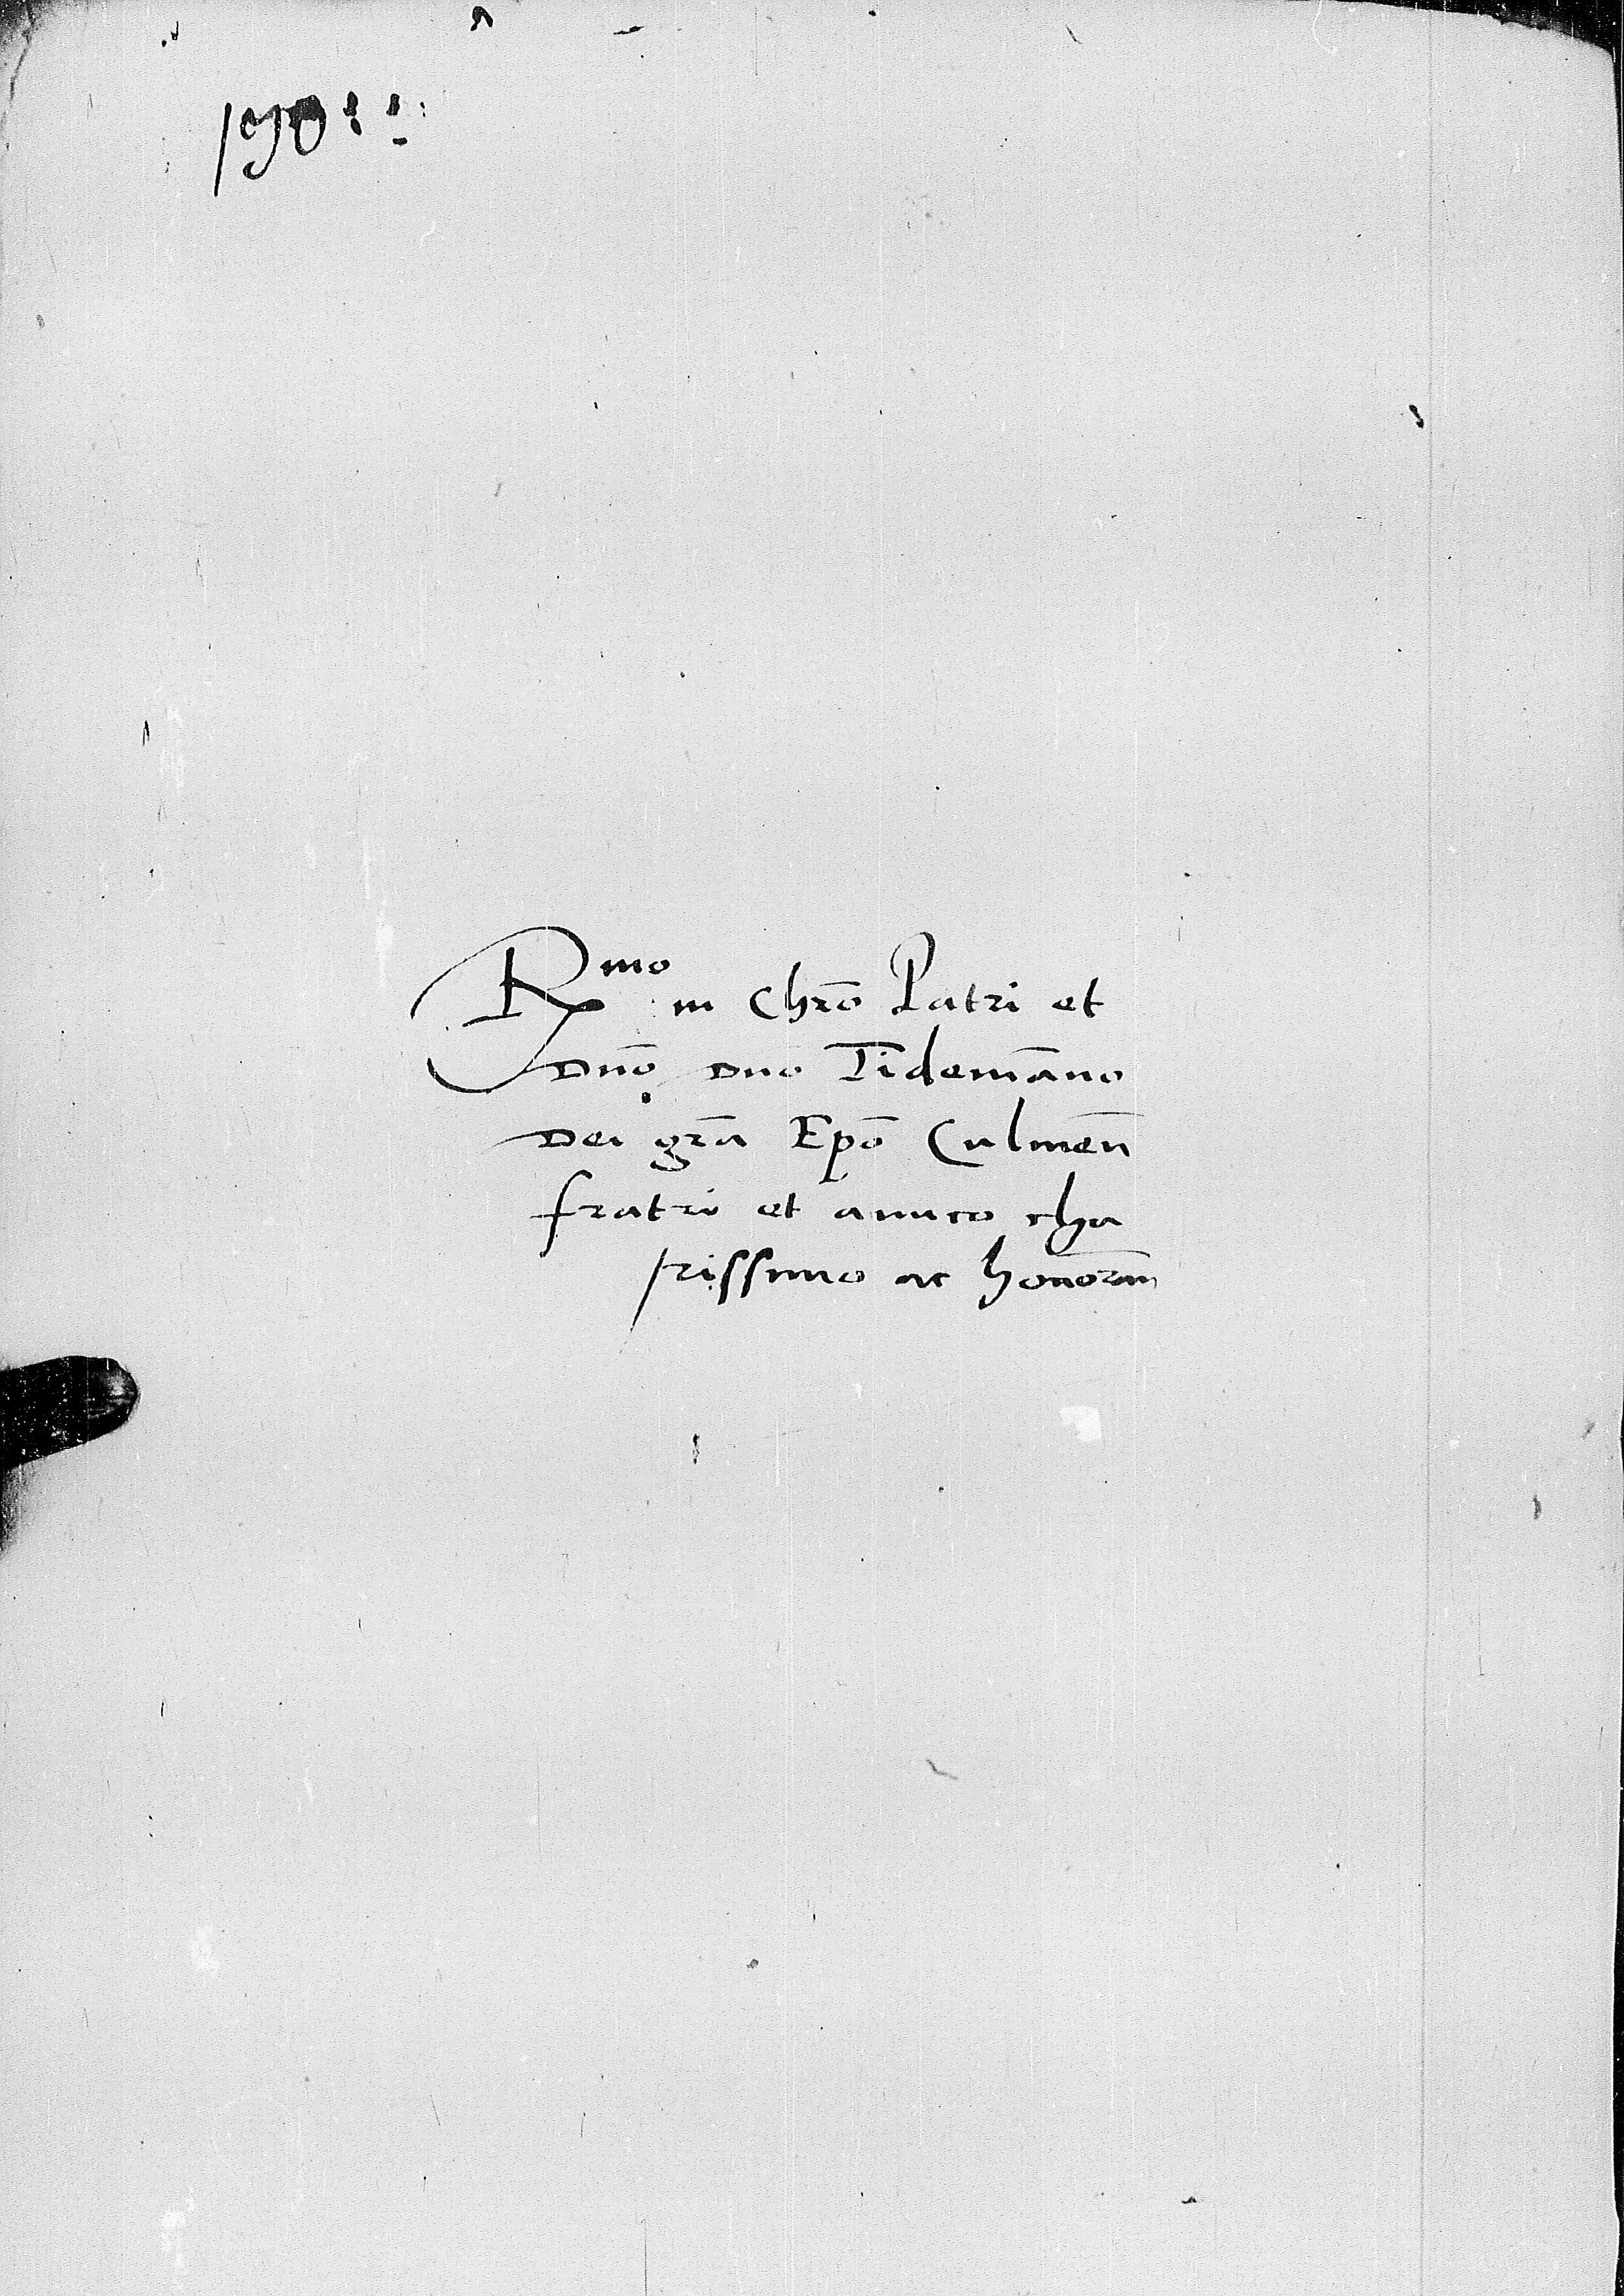 Rmo in Chrō Patri et
Dnō Dno Tidemāno
Dei grā Epō Culmen̄
fratri et amico cha
rissimo ac honorān